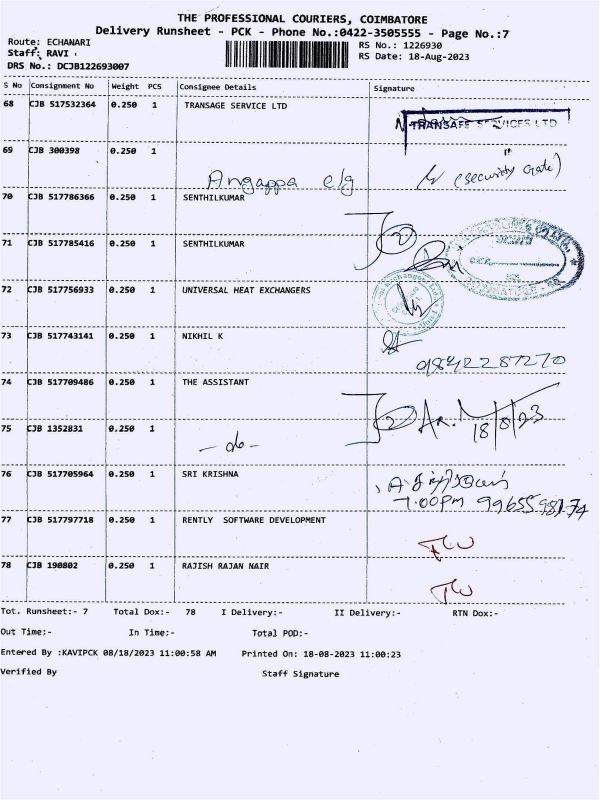 THE PROFESSIONAL COURIERS, COIMBATORE
Delivery Runsheet - PCK - Phone No.:0422-3505555 - Page No.:7
Route: ECHANARI
RS No.: 1226930
Staff: RAVI
RS Date: 18-Aug-2023
DRS No.: DCJB122693007
S No Consignment No Weight PCS Consignee Details Signature
68 CJB 517532364 0.250 1 TRANSAGE SERVICE LTD
TRANSAFE SERVICES LTD
69 CJB 300398 0.250 1
Angappa clg (security Gate)
70 CJB 517786366 0.250 1 SENTHILKUMAR
71 CJB 517785416 0.250 1 SENTHILKUMAR
72 CJB 517756933 0.250 1 UNIVERSAL HEAT EXCHANGERS
73 CJB 517743141 0.250 1 NIKHIL K
9842287270
74 CJB 517709486 0.250 1 THE ASSISTANT
18/8/23
75 CJB 1352831 0.250 1
- do -
76 CJB 517705964 0.250 1 SRI KRISHNA
7.00pm 9965598174
77 CJB 517797718 0.250 1 RENTLY SOFTWARE DEVELOPMENT
78 CJB 190802 0.250 1 RAJISH RAJAN NAIR
Tot. Runsheet:- 7 Total Dox:- 78 I Delivery:- II Delivery:- RTN Dox:-
Out Time:- In Time:- Total POD:-
Entered By :KAVIPCK 08/18/2023 11:00:58 AM Printed On: 18-08-2023 11:00:23
Verified By Staff Signature